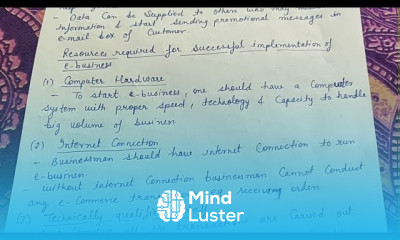 - Data can be supplied to others who may
information & start sending promotional messages in
e-mail box of customer.
Resources required for successful implementation of
e-business
(1) Computer Hardware
- To start e-business, one should have a computer
system with proper speed, technology & capacity to handle
big volume of business
(2) Internet Connection
- Businessman should have internet connection to run
e-business
- without internet connection businessman cannot conduct
any e-commerce receiving order
(3) Technically
are carried out
Mind
Luster